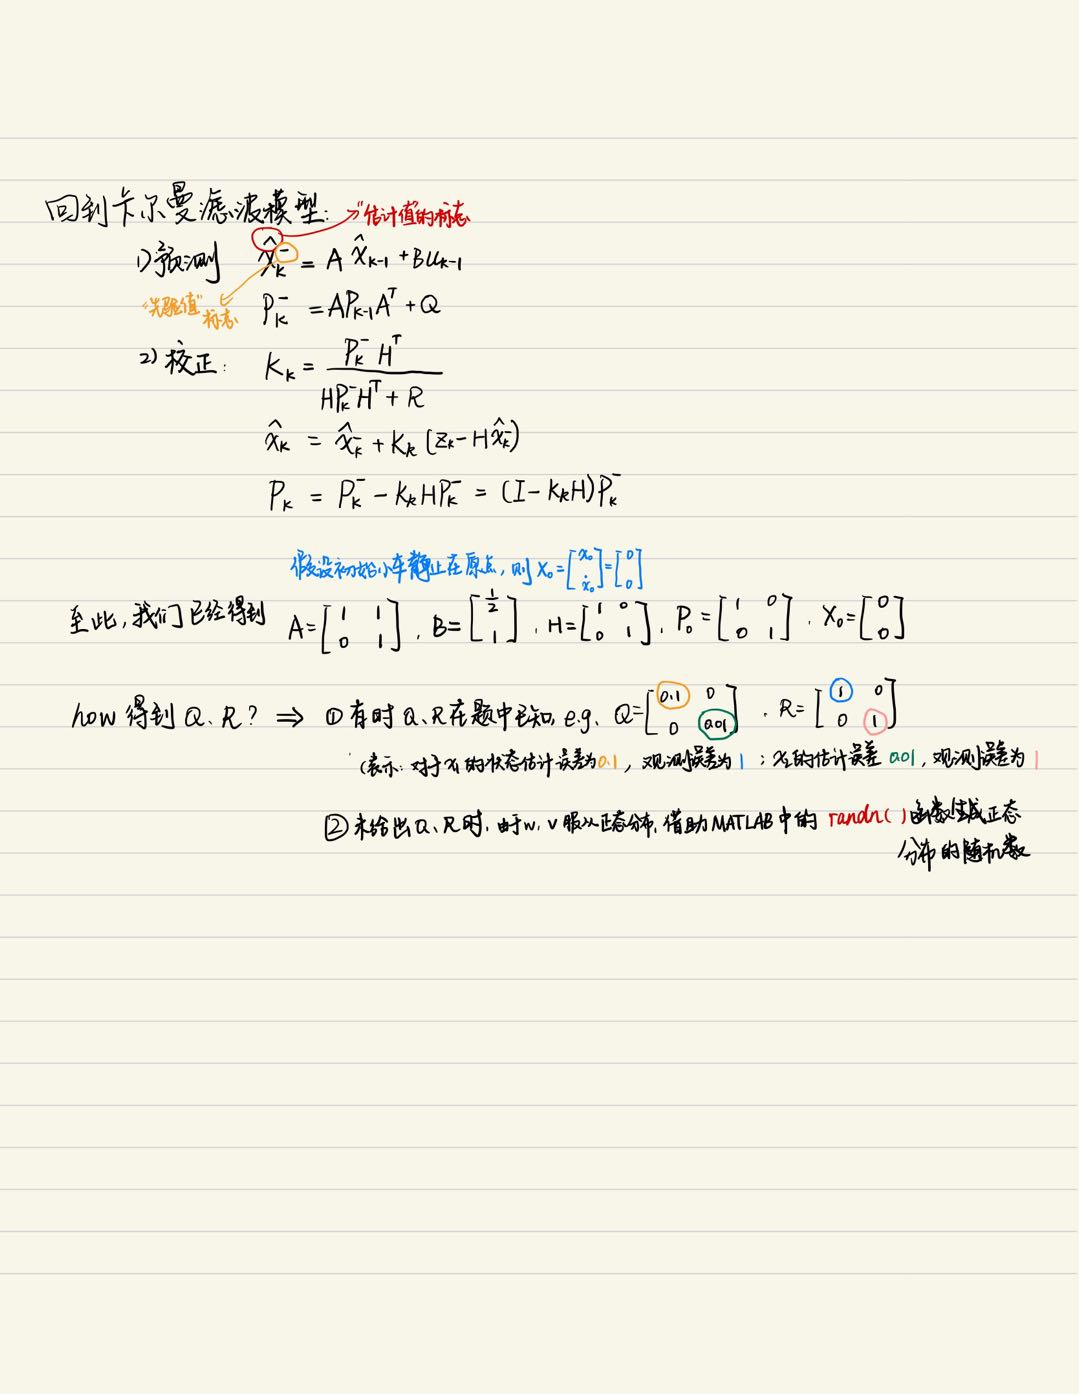 回到卡尔曼滤波模型: "估计值"的标志
1) 预测 x̂ₖ⁻ = A x̂ₖ₋₁ + B uₖ₋₁
"先验值"标志 Pₖ⁻ = A Pₖ₋₁ Aᵀ + Q
2) 校正: Kₖ = Pₖ⁻ Hᵀ / (H Pₖ⁻ Hᵀ + R)
x̂ₖ = x̂ₖ⁻ + Kₖ (zₖ - H x̂ₖ⁻)
Pₖ = Pₖ⁻ - Kₖ H Pₖ⁻ = (I - Kₖ H) Pₖ⁻
假设初始小车静止在原点, 则 x₀ = [x₀; ẋ₀] = [0; 0]
至此, 我们已经得到 A = [1 1; 0 1], B = [1/2; 1], H = [1 0; 0 1], P₀ = [1 0; 0 1], X₀ = [0; 0]
how 得到 Q、R? ⇒ ① 有时 Q、R 在题中已知, e.g. Q = [0.1 0; 0 0.01], R = [1 0; 0 1]
(表示: 对于 x₁ 的状态估计误差为 0.1, 观测误差为 1; x₂ 的估计误差 0.01, 观测误差为 1
② 未给出 Q、R 时, 由于 w, v 服从正态分布, 借助 MATLAB 中的 randn() 函数生成正态
分布的随机数